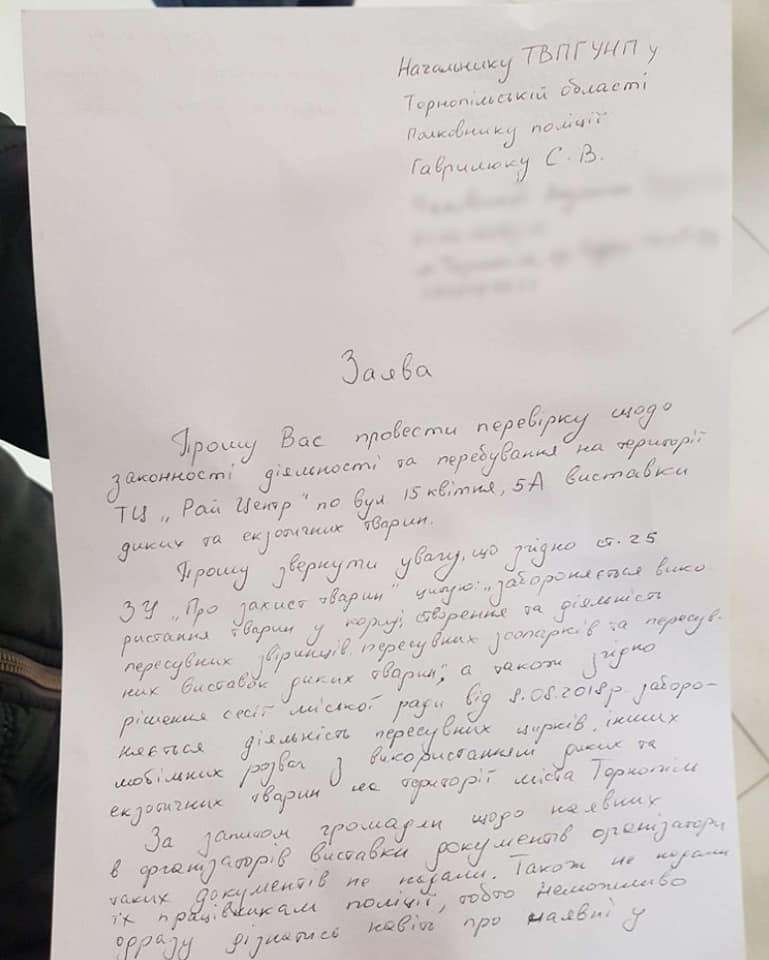 Начальнику ТВПГУНП у
Торнопільській області
Полковнику поліції
Гаврилюку С. В.
Заява
Прошу Вас провести перевірку щодо
законності діяльності та перебування на території
ТЦ „Рай Центр" по вул. 15 квітня, 5А виставки
диких та екзотичних тварин.
Прошу звернути увагу, що згідно ст. 25
ЗУ „Про захист тварин" цитую: „забороняється вико-
ристання тварин у формі: створення та діяльність
пересувних звіринців, пересувних зоопарків та пересув-
них виставок диких тварин", а також згідно
рішення сесії міської ради від 8.08.2018р. заборо-
няється діяльність пересувних цирків, інших
мобільних розваг з використанням диких та
екзотичних тварин на території міста Тернопіль
За запитом громадян щодо наявних
в організаторів виставки документів організатори
таких документів не надали. Також не надали
їх працівникам поліції, тобто неможливо
одразу дізнатись навіть про наявні у